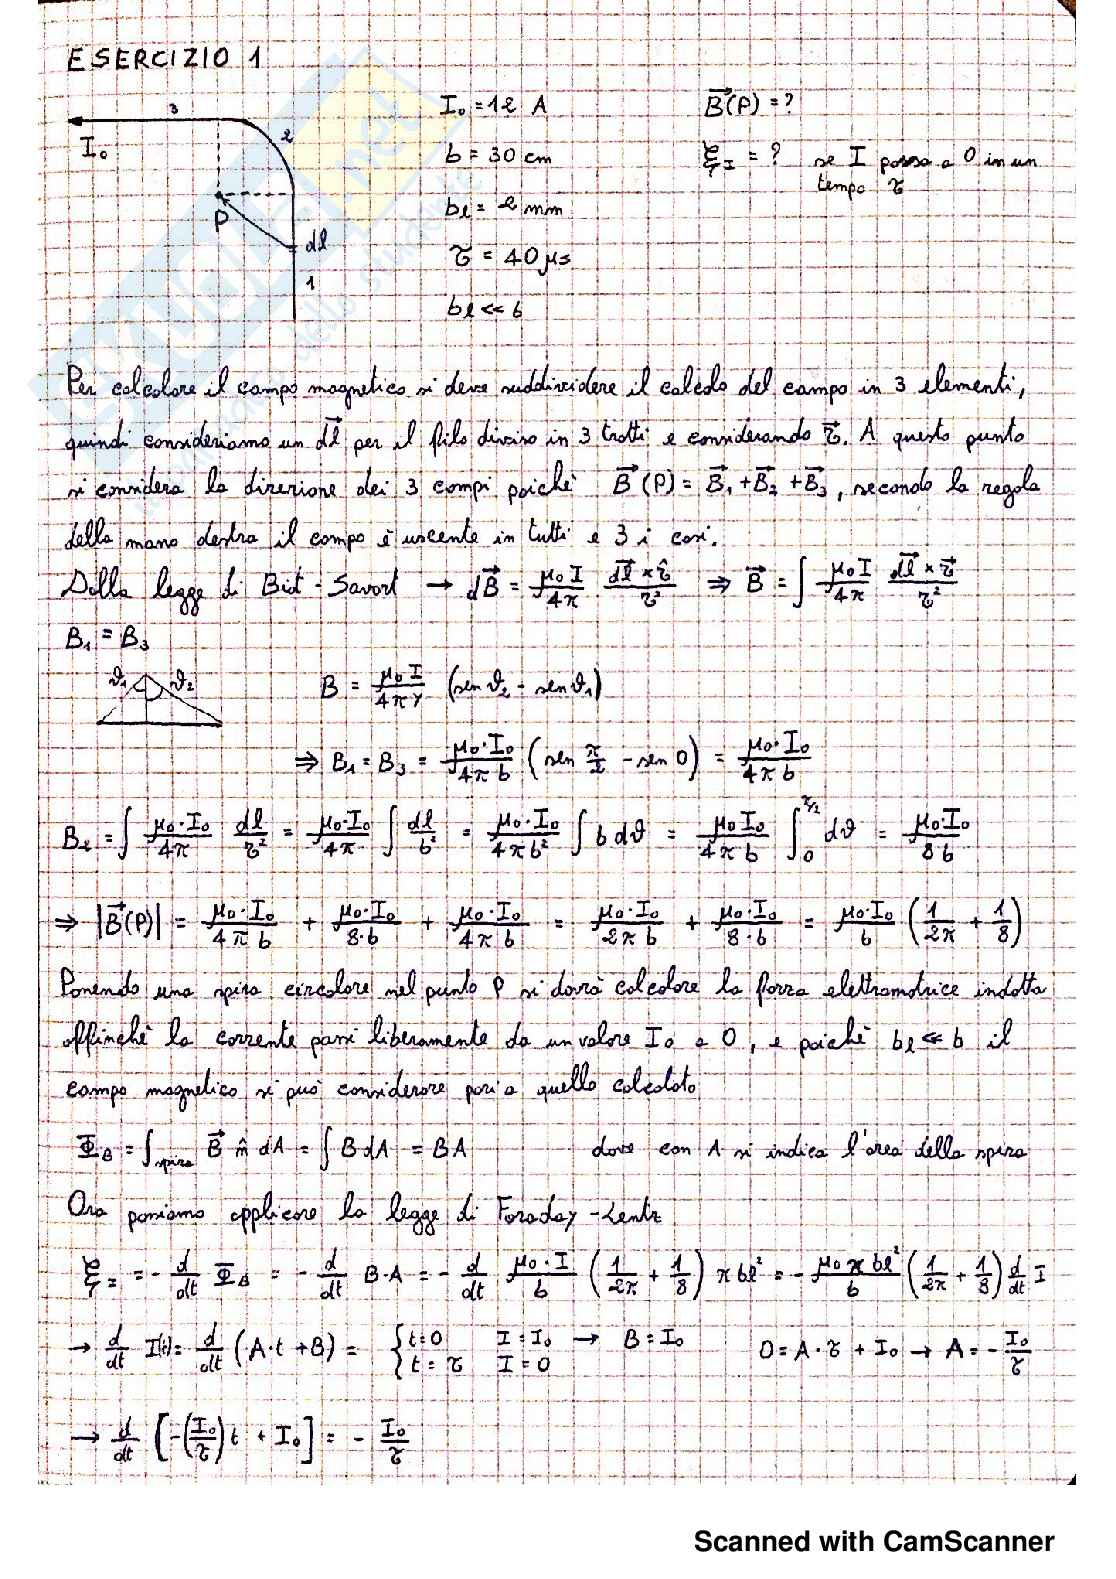 ESERCIZIO 1
3
2
I₀
P
dl
1
I₀ = 12 A
b = 30 cm
bℓ = 2 mm
τ = 40 μs
bℓ << b
B⃗(P) = ?
ξ_I = ? se I passa a 0 in un
tempo τ
Per calcolare il campo magnetico si deve suddividere il calcolo del campo in 3 elementi,
quindi consideriamo un dl⃗ per il filo diviso in 3 tratti e considerando r⃗. A questo punto
si considera la direzione dei 3 campi poichè B⃗(P) = B⃗₁ + B⃗₂ + B⃗₃, secondo la regola
della mano destra il campo è uscente in tutti e 3 i casi.
Dalla legge di Biot - Savart → dB⃗ = μ₀ I / 4π · dl⃗ × r̂ / r² ⇒ B⃗ = ∫ μ₀ I / 4π · dl⃗ × r⃗ / r²
B₁ = B₃
ϑ₁ ϑ₂
B = μ₀ I / 4πr (sen ϑ₂ - sen ϑ₁)
⇒ B₁ = B₃ = μ₀·I₀ / 4π b (sen π/2 - sen 0) = μ₀·I₀ / 4π b
B₂ = ∫ μ₀·I₀ / 4π · dl / r² = μ₀·I₀ / 4π ∫ dl / b² = μ₀·I₀ / 4π b² ∫ b dϑ = μ₀ I₀ / 4π b ∫₀^{π/2} dϑ = μ₀·I₀ / 8 b
⇒ |B⃗(P)| = μ₀·I₀ / 4π b + μ₀·I₀ / 8·b + μ₀·I₀ / 4π b = μ₀·I₀ / 2π b + μ₀·I₀ / 8·b = μ₀·I₀ / b (1/2π + 1/8)
Ponendo una spira circolare nel punto P si dovrà calcolare la forza elettromotrice indotta
affinchè la corrente passi liberamente da un valore I₀ a 0, e poichè bℓ << b il
campo magnetico si può considerare pari a quello calcolato
Φ_B = ∫spira B⃗ n̂ dA = ∫ B dA = BA dove con A si indica l'area della spira
Ora possiamo applicare la legge di Faraday - Lentz
ξ_I = - d/dt Φ_B = - d/dt B·A = - d/dt μ₀·I / b (1/2π + 1/8) π bℓ² = - μ₀ π bℓ² / b (1/2π + 1/8) d/dt I
→ d/dt I(t) = d/dt (A·t + B) = { t=0 I = I₀ → B = I₀ 0 = A·τ + I₀ → A = - I₀/τ
t = τ I = 0
→ d/dt [-(I₀/τ) t + I₀] = - I₀/τ
Scanned with CamScanner